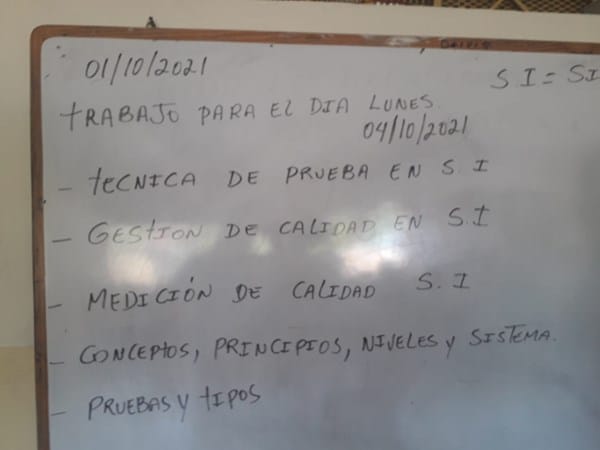 01/10/2021
S I = SI
tRABAJO PARA EL DIA LUNES.
04/10/2021
- tECNICA DE PRUEBA EN S. I
- GESTION DE CALIDAD EN S.I
- MEDICIÓN DE CALIDAD S. I
- CONCEPtOS, PRINCIPIOS, NIVELES y SISTEMA.
- PRUEBAS y tIPOS